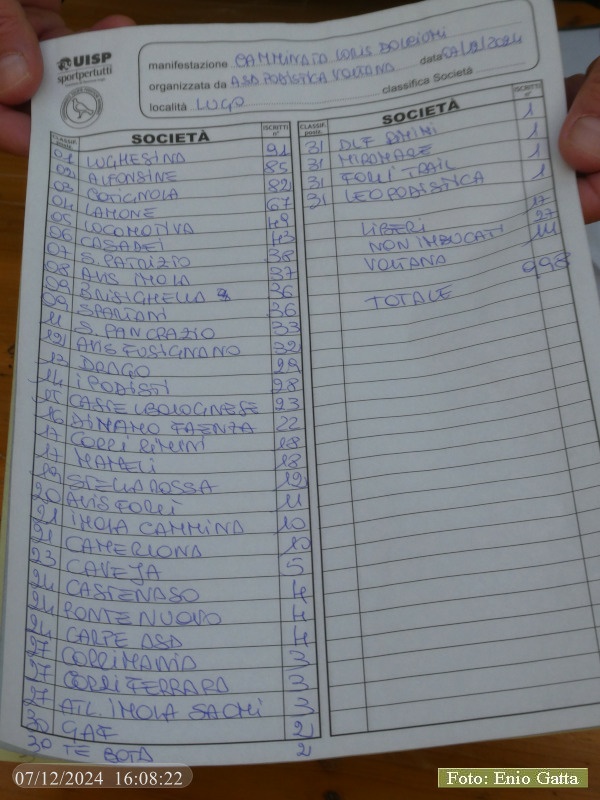 UISP
sportpertutti
manifestazione CAMMINATA LORIS BOLDIONI data 07/12/2024
organizzata da ASD PODISTICA VOLTANA
classifica Società
località LUGO
CLASSIF. SOCIETÀ ISCRITTI n°
01 LUGHESINA 91
02 ALFONSINE 85
03 COTIGNOLA 82
04 LAMONE 67
05 LOCOMOTIVA 48
06 CASADEI 43
07 S. PATRIZIO 38
08 AVIS IMOLA 37
09 BRISIGHELLA 36
09 SPARTANI 36
11 S. PANCRAZIO 33
12 AVIS FUSIGNANO 32
13 DRAGO 29
14 I PODISTI 28
15 CASTELBOLOGNESE 23
16 DINAMO FAENZA 22
17 CORRI RIMINI 18
17 MAMELI 18
19 STELLA ROSSA 12
20 AVIS FORLÌ 11
21 IMOLA CAMMINA 10
21 CAMERLONA 10
23 CAVEJA 5
24 CASTENASO 4
24 PONTE NUOVO 4
24 CARPE ASD 4
27 CORRIMANIA 3
27 CORRIFERRARA 3
27 ATL. IMOLA SACMI 3
30 GAF 2
30 TE BOTA 2
CLASSIF. SOCIETÀ ISCRITTI n°
31 DLF RIMINI 1
31 MIRAMARE 1
31 FORLÌ TRAIL 1
31 LEOPODISTICA 1
LIBERI 17
NON IMBUCATI 27
VOLTANA 111
TOTALE 998
07/12/2024 16:08:22
Foto: Enio Gatta